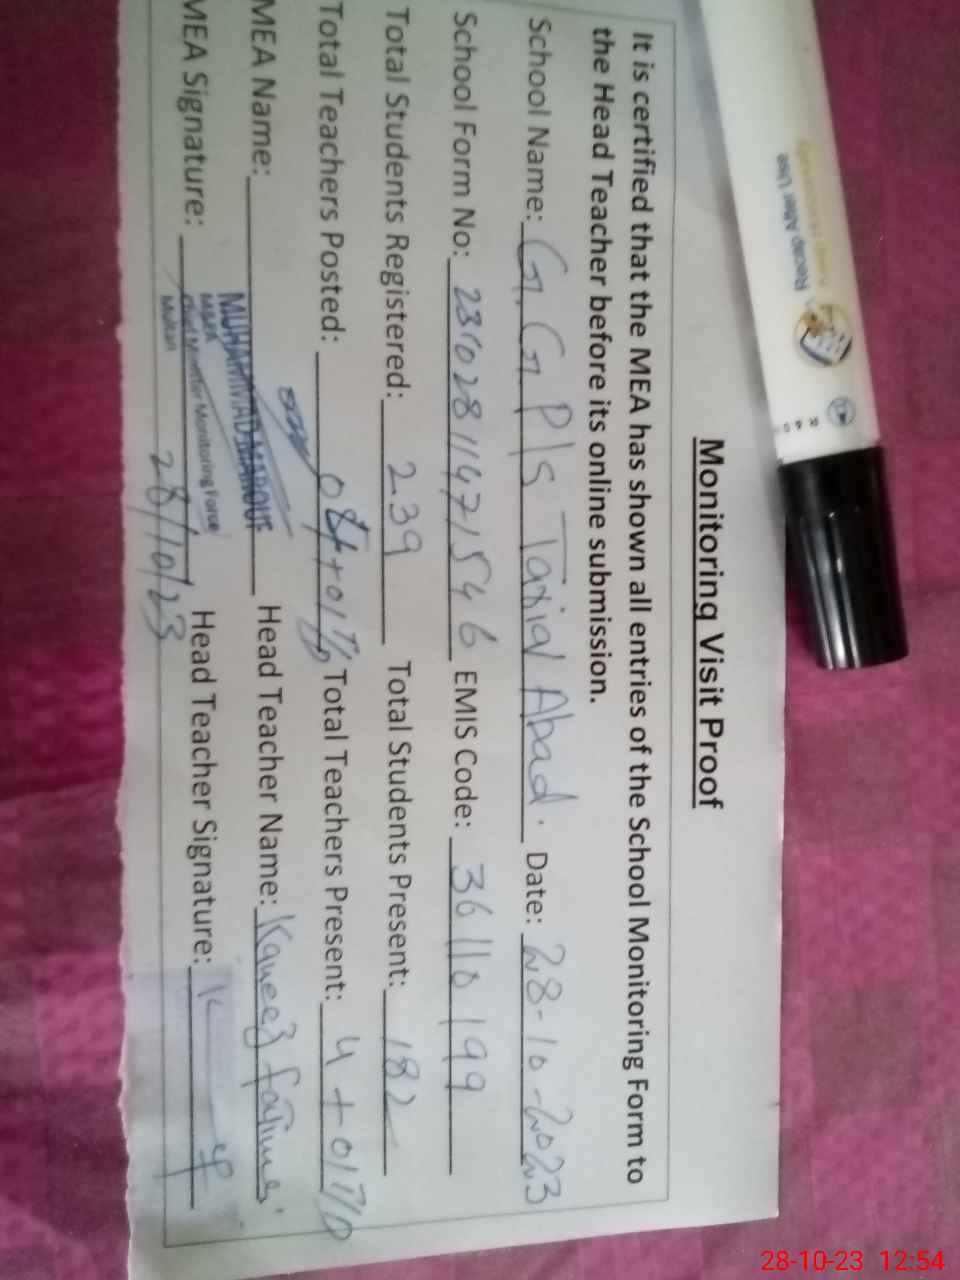 Monitoring Visit Proof
It is certified that the MEA has shown all entries of the School Monitoring Form to
the Head Teacher before its online submission.
School Name: G. G. P/S Tariq Abad. Date: 28-10-2023
School Form No: 231028114715546 EMIS Code: 36110199
Total Students Registered: 239 Total Students Present: 182
Total Teachers Posted: 08+01 Total Teachers Present: 4+01
MEA Name: MUHAMMAD MAROUF Head Teacher Name: Kaneez fatima
MEA
MEA Signature: Chief Minister Monitoring Force Head Teacher Signature:
Multan
28/10/23
Recap After Use
28-10-23 12:54